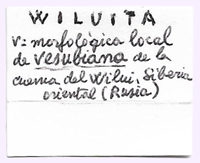 WILUITA
V: morfológica local
de vesubiana de la
cuenca del Wilui, Siberia
oriental (Rusia)